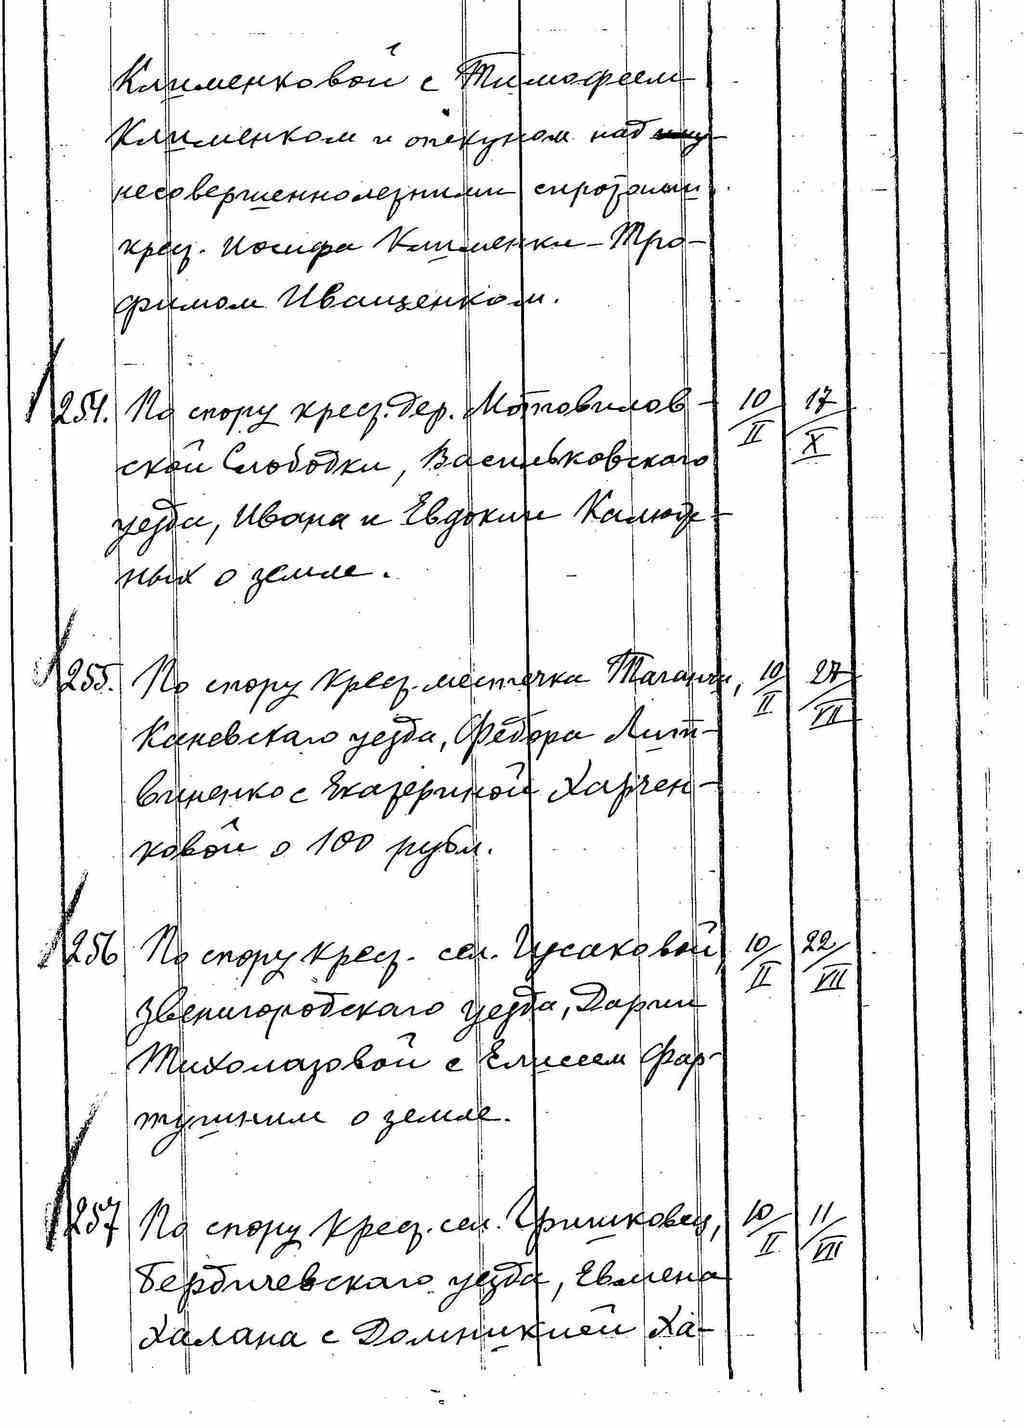 Клименковой с Тимофеем
Клименком и опекуном над
несовершеннолетними сиротами
крест. Иосифа Клименки - Тро-
фимом Иващенком.
254. По спору крест. дер. Мотовилов- 10/II 17/X
ской Слободки, Васильковского
уезда, Ивана и Евдокии Калюж-
ных о земле.
255. По спору крест. местечка Таганчи, 10/II 27/VII
Каневскаго уезда, Федора Лит-
виненко с Екатериной Харчен-
ковой о 100 рубл.
256 По спору крест. сел. Гусаковой, 10/II 22/VII
Звенигородского уезда, Дарии
Тихолазовой с Елисеем Фар-
тушним о земле.
257 По спору крест. сел. Гришковец, 10/II 11/VII
Бердичевскаго уезда, Евмена
Халана с Домникией Ха-